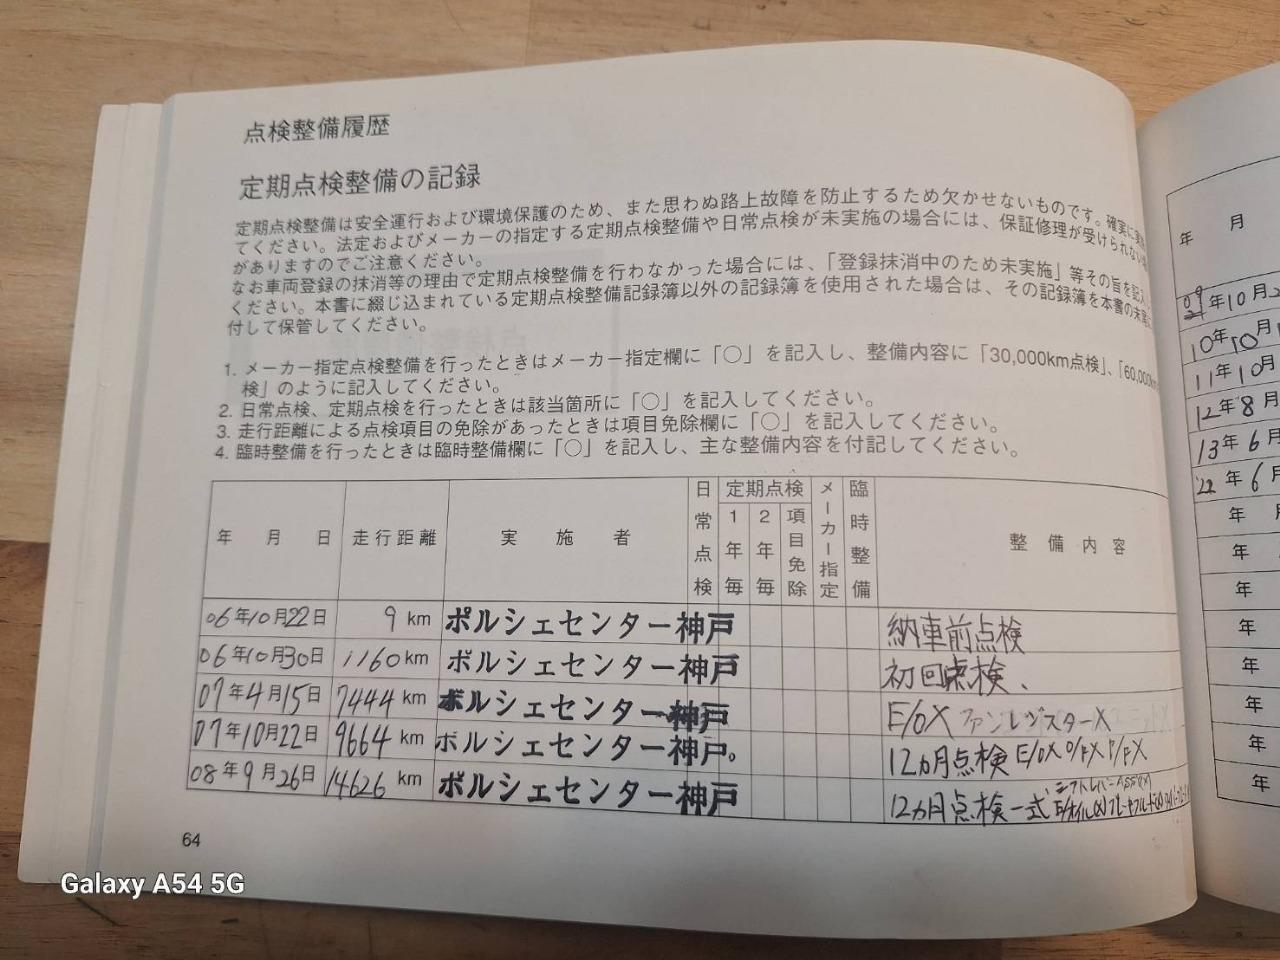 点検整備履歴
定期点検整備の記録
定期点検整備は安全運行および環境保護のため、また思わぬ路上故障を防止するため欠かせないものです。確実に実施
てください。法定およびメーカーの指定する定期点検整備や日常点検が未実施の場合には、保証修理が受けられない場
がありますのでご注意ください。
なお車両登録の抹消等の理由で定期点検整備を行わなかった場合には、「登録抹消中のため未実施」等その旨を記入
ください。本書に綴じ込まれている定期点検整備記録簿以外の記録簿を使用された場合は、その記録簿を本書の末尾に
付して保管してください。
1. メーカー指定点検整備を行ったときはメーカー指定欄に「○」を記入し、整備内容に「30,000km点検」、「60,000km
検」のように記入してください。
2. 日常点検、定期点検を行ったときは該当箇所に「○」を記入してください。
3. 走行距離による点検項目の免除があったときは項目免除欄に「○」を記入してください。
4. 臨時整備を行ったときは臨時整備欄に「○」を記入し、主な整備内容を付記してください。
年 月 日 走行距離 実施者 日常点検 定期点検 1年毎 2年毎 項目免除 メーカー指定 臨時整備 整備内容
06年10月22日 9 km ポルシェセンター神戸 納車前点検
06年10月30日 1160 km ポルシェセンター神戸 初回点検、
07年4月15日 7444 km ポルシェセンター神戸 E/OX
07年10月22日 9664 km ポルシェセンター神戸。 12ヵ月点検 E/OX O/FX P/FX
08年9月26日 14626 km ポルシェセンター神戸 12ヵ月点検一式
64
年 月
09年10月
10年10月
11年10月
12年8月
13年6月
'22年6月
年 月
年
年
年
年
年
年
年
Galaxy A54 5G